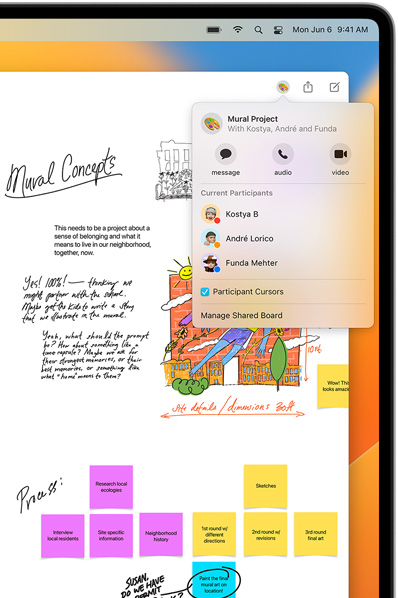 Mon Jun 6 9:41 AM
Mural Project
With Kostya, André and Funda
message audio video
Current Participants
Kostya B
André Lorico
Funda Mehter
Participant Cursors
Manage Shared Board
Mural Concepts
This needs to be a project about a
sense of belonging and what it
means to live in our neighborhood,
together, now.
Yes! 100%! — thinking we
might partner with the school.
Maybe get the kids to write a story
that we illustrate in the mural.
Yeah, what should the prompt
be? How about something like a
time capsule? Maybe we ask for
their strongest memories, or their
best memories, or something like
what "home" means to them?
10ft
Site details / dimensions 30ft
Wow! This
looks amazing
Process:
Research local
ecologies
Sketches
Interview
local residents
Site specific
information
Neighborhood
history
1st round w/
different
directions
2nd round w/
revisions
3rd round
final art
Paint the final
mural art on
location!
SUSAN,
DO WE HAVE